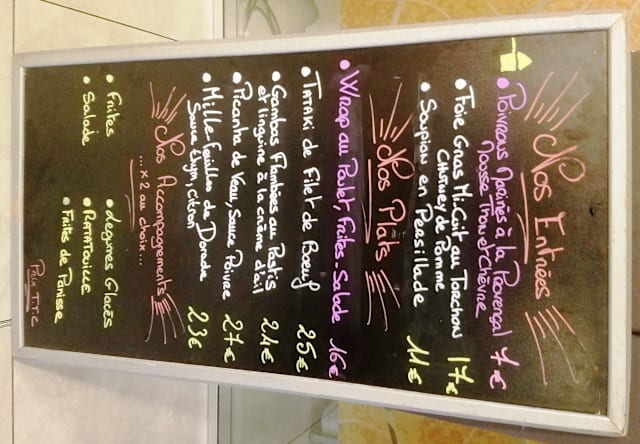 Nos Entrées
• Poivrons Marinés à la Provençal 7€
Mousse Thon et Chèvre
• Foie Gras Mi-Cuit au Torchon 17€
Chutney de Pomme
• Soupion en Persillade 11€
Nos Plats
• Wrap au Poulet, Frites-Salade 16€
• Tataki de Filet de Bœuf 25€
• Gambas Flambées au Pastis 24€
et linguine à la crème d'ail
• Picanha de Veau, Sauce Poivre 27€
• Mille-feuilles de Dorade 23€
Sauce thym, citron
Nos Accompagnements
... x2 au choix...
• Frites • Légumes Glacés
• Salade • Ratatouille
• Frites de Panisse
Prix T.T.C